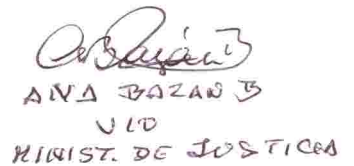 ANA BAZAN B
VID
MINIST. DE JUSTICIA